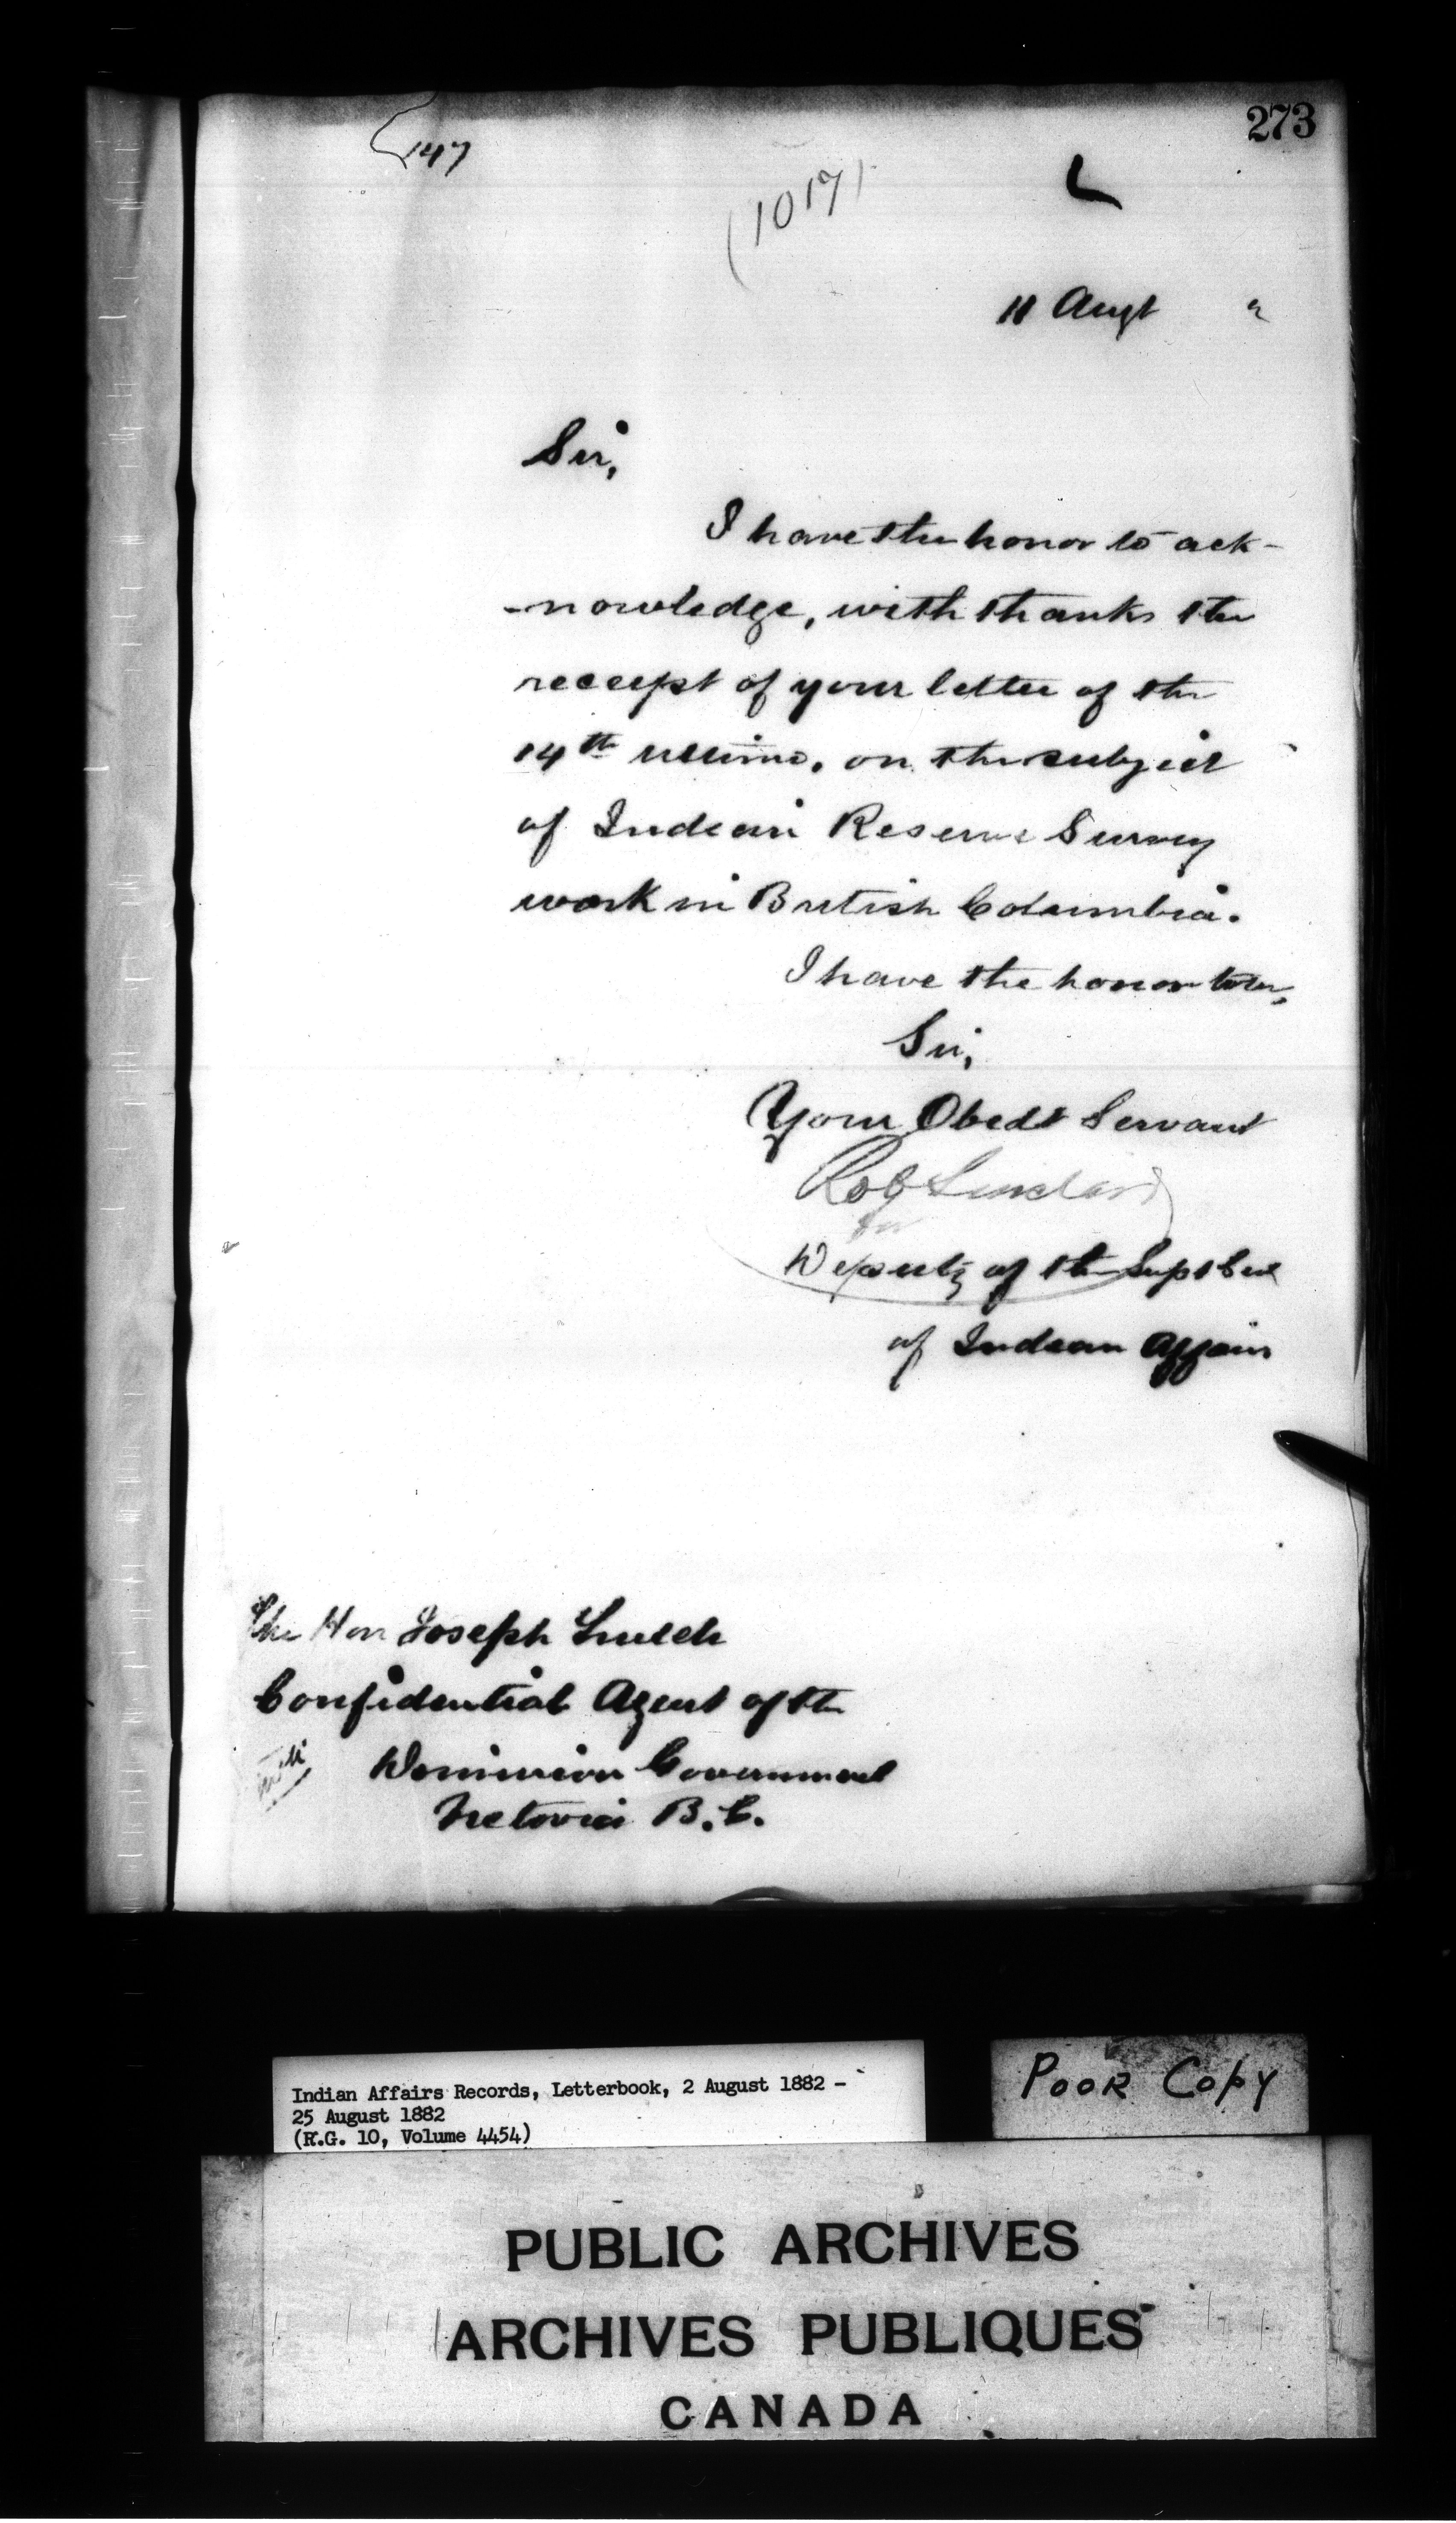 273
147
(1017)
11 Augt "
Sir,
I have the honor to ack-
-nowledge, with thanks the
receipt of your letter of the
14th ultimo, on the subject
of Indian Reserve Survey
work in British Columbia.
I have the honor to be,
Sir,
Your Obedt Servant
Rob Sinclair
for
Deputy of the Supt Genl
of Indian Affairs
The Hon Joseph Trutch
Confidential Agent of the
Dominion Government
Victoria B.C.
Indian Affairs Records, Letterbook, 2 August 1882 -
25 August 1882
(R.G. 10, Volume 4454)
Poor Copy
PUBLIC ARCHIVES
ARCHIVES PUBLIQUES
CANADA